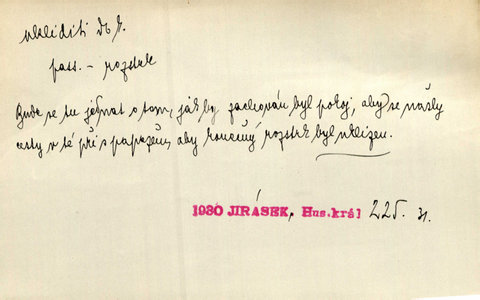 uklíditi dk f.
pass. – rozstrk
Bude se tu jednat o tom, jak by zachován byl pokoj, aby se našly
cesty v té při s papežem, aby konečný rozstrk byl uklizen.
1930 JIRÁSEK, Hus. král 225. n.